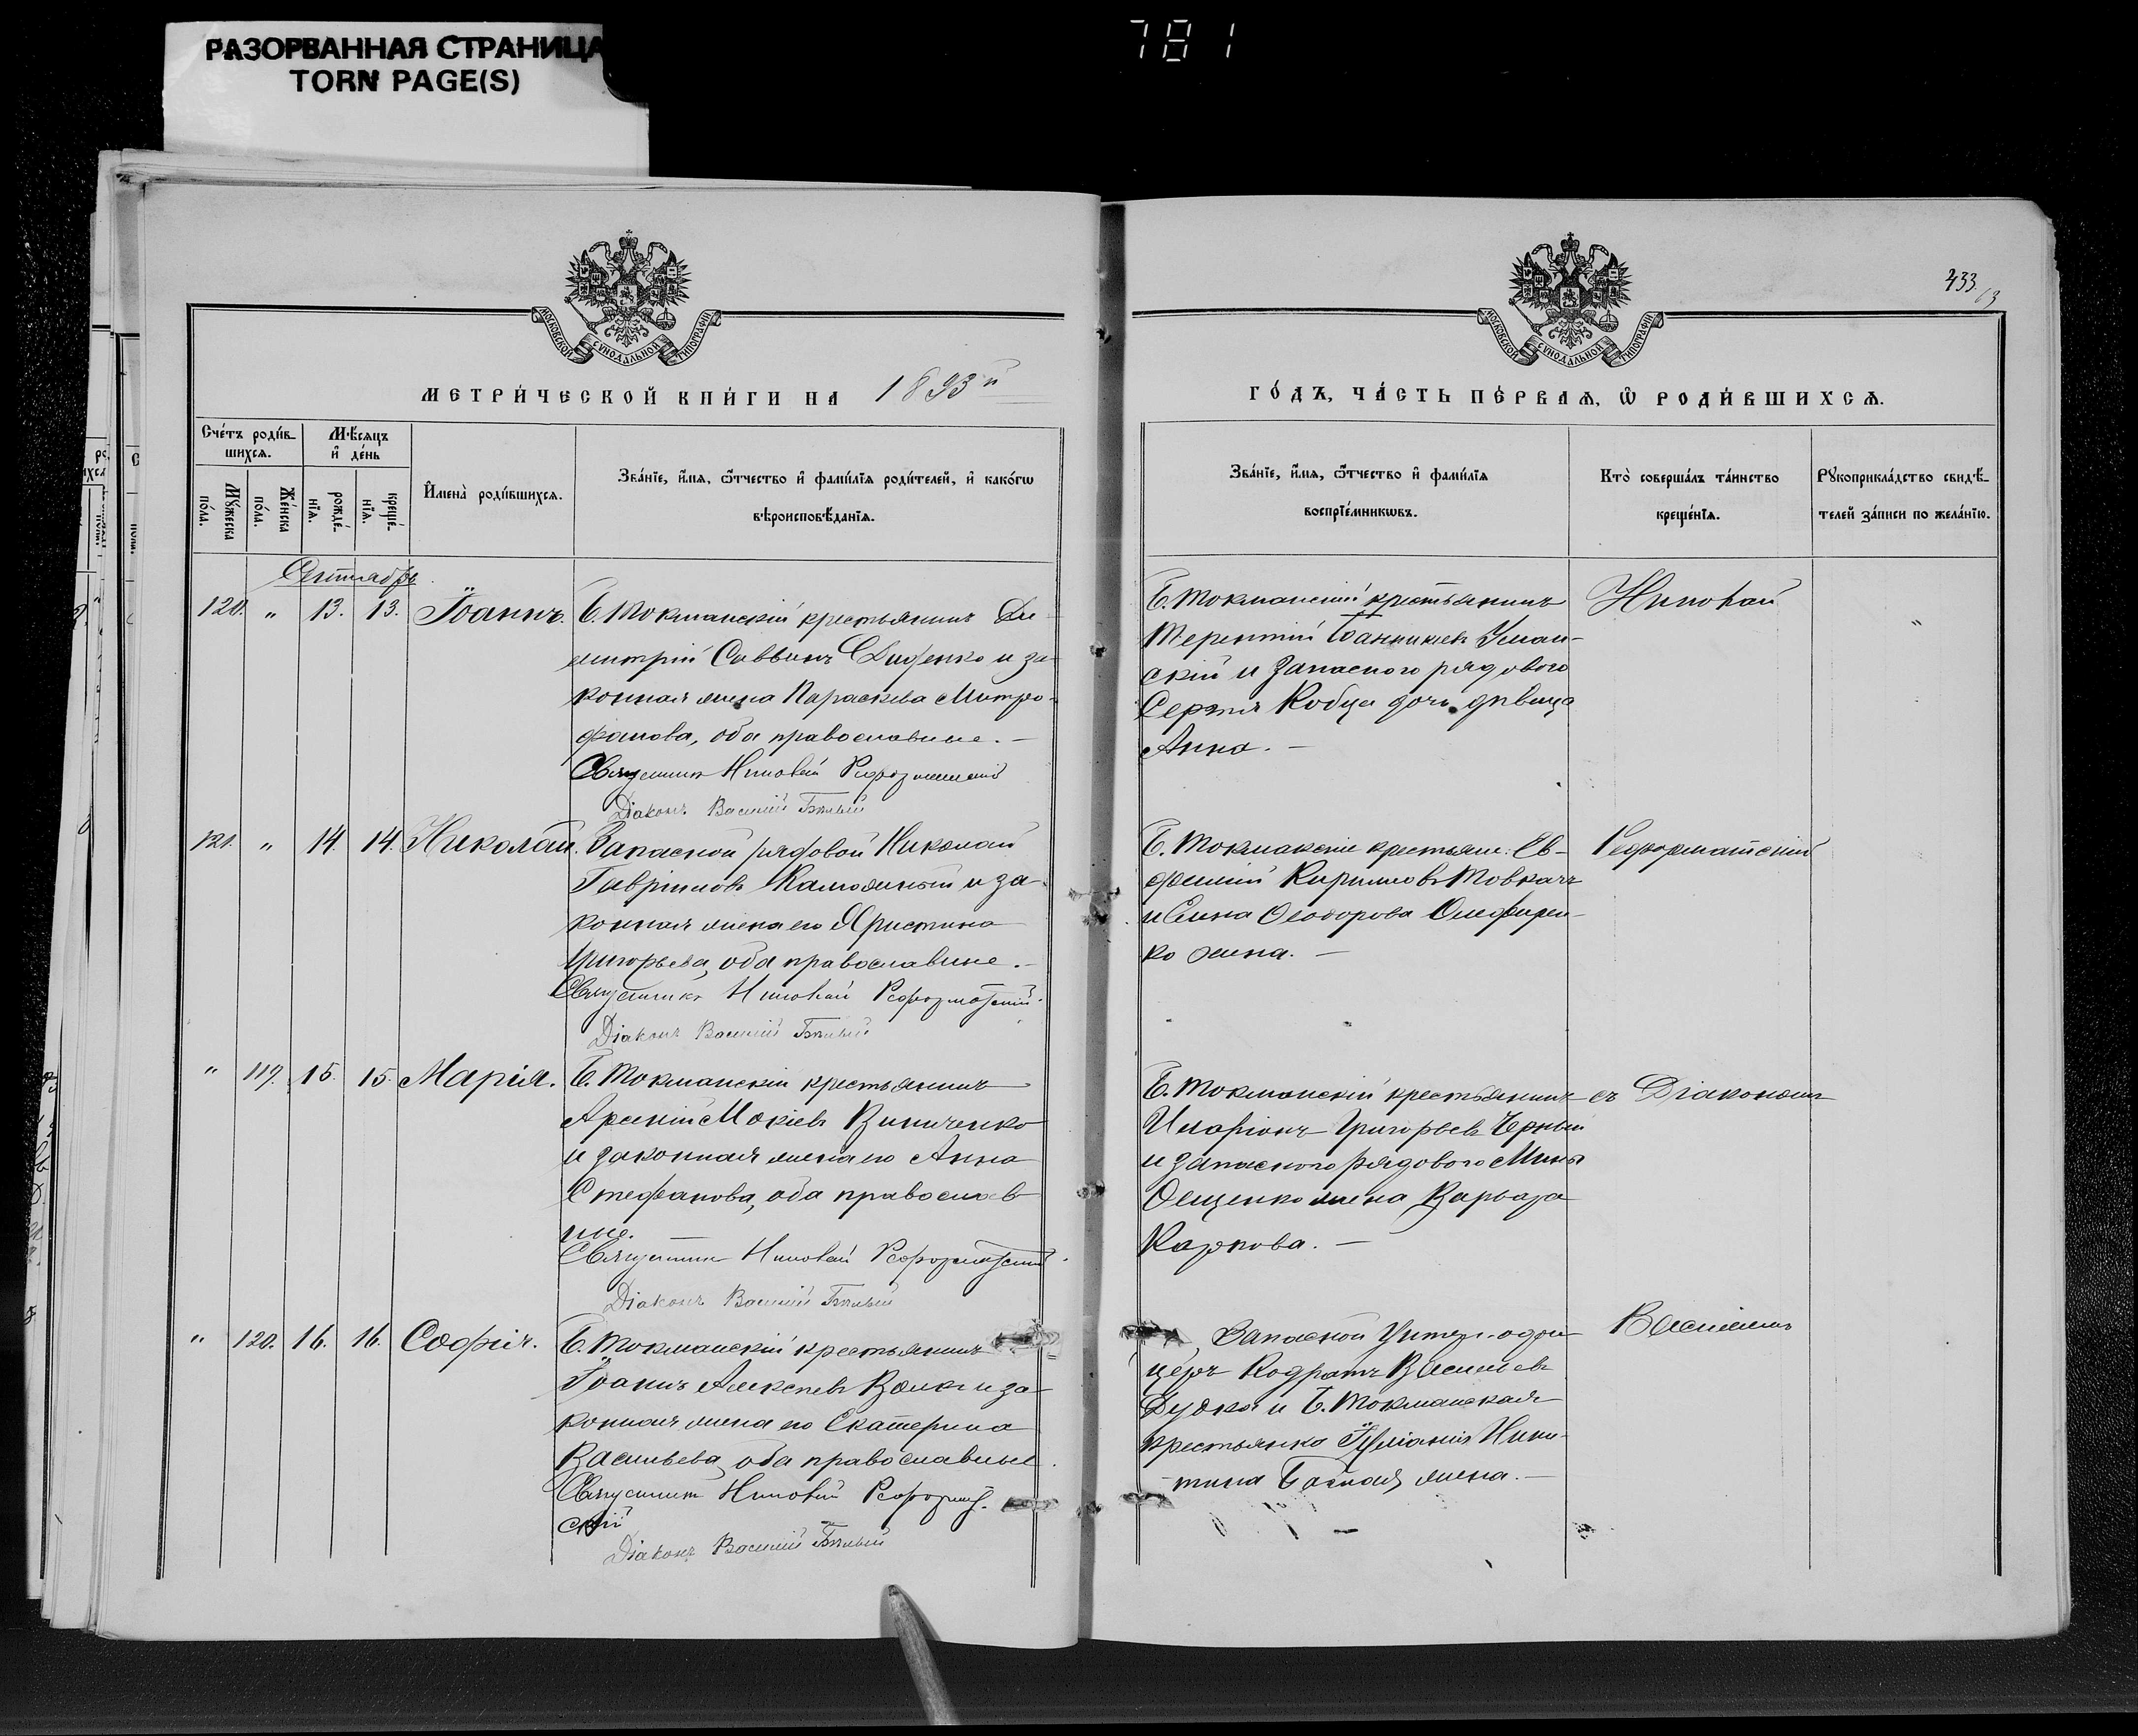 РАЗОРВАННАЯ СТРАНИЦА
TORN PAGE(S)
781
433.
63
МОСКОВСКОЙ СѴНОДАЛЬНОЙ ТИПОГРАФІИ
МОСКОВСКОЙ СѴНОДАЛЬНОЙ ТИПОГРАФІИ
МЕТРИ́ЧЕСКОЙ КНИ́ГИ НА 1893й
ГО́ДЪ, ЧА́СТЬ ПЕ́РВАѦ, Ѽ РОДИ́ВШИХСѦ.
Сче́тъ роди́в-
шихсѧ.
Мѣ́сѧцъ
и҆ де́нь
Мꙋ́жеска
по́ла.
Же́нска
по́ла.
рожде́-
нїѧ.
креще́-
нїѧ.
И҆мена̀ роди́вшихсѧ.
Зва́нїе, и҆́мѧ, ѻ҆́тчество и҆ фами́лїѧ роди́телей, и҆ како́гѡ
вѣроисповѣ́данїѧ.
Зва́нїе, и҆́мѧ, ѻ҆́тчество и҆ фами́лїѧ
воспрїе́мникѡвъ.
Кто̀ соверша́лъ та́инство
креще́нїѧ.
Рꙋкоприкла́дство свидѣ́-
телей за́писи по жела́нїю.
Сентябрь
120. " 13. 13. Іоаннъ. Б. Токмакскій крестьянинъ Ди-
митрій Саввинъ Диденко и за-
конная жена Параскева Митро-
фанова, оба православные. —
Священник Николай Реформатский
Діаконъ Василій Бѣлый
Б. Токмакскій крестьянинъ
Терентій Іоанникіевъ Уман-
скій и запаснаго рядового
Сергія Кобца дочь дѣвица
Анна. —
Николай
"
121. " 14. 14. Николай. Запасной рядовой Николай
Гавріиловъ и за-
конная жена его Христина
Григорьева, оба православные. —
Священникъ Николай Реформатскій.
Діаконъ Василій Бѣлый
Б. Токмакскіе крестьяне: Ев-
фимій Кирилловъ Товкачъ
и Елена Ѳеодорова Олефирен-
ко жена. —
Реформатскій
" 119. 15. 15. Марія. Б. Токмакскій крестьянинъ
Арсеній Мокіевъ Винниченко
и законная жена его Анна
Стефанова, оба православ-
ные. —
Священник Николай Реформатский.
Діаконъ Василій Бѣлый
Б. Токмакскій крестьянинъ
Иларіонъ Григорьевъ Черный
и запаснаго рядового Мины
Ѳещенко жена Варвара
Карпова. —
съ Діакономъ
" 120. 16. 16. Софія. Б. Токмакскій крестьянинъ
Іоаннъ Алексѣевъ Волкъ и за-
конная жена его Екатерина
Васильева, оба православные.
Священник Николай Реформат-
скій
Діаконъ Василій Бѣлый
Запасной Унтеръ-офи-
церъ Кодратъ Васильевъ
Дудка и Б. Токмакская
крестьянка Іуліанія Ники-
тина жена. —
Василіемъ